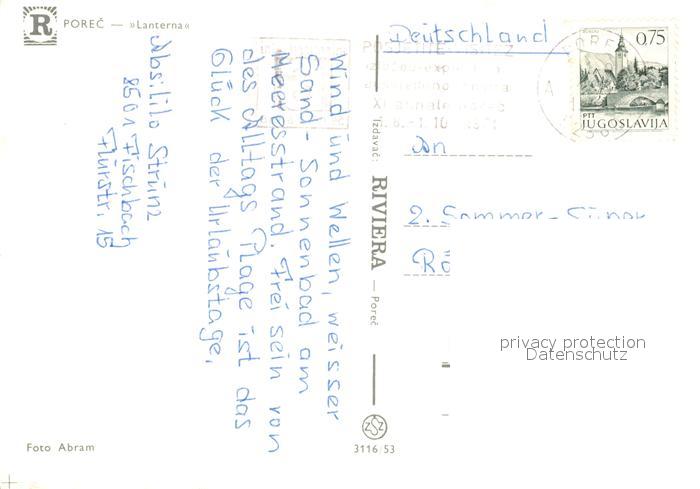 POREČ — »Lanterna«
Wind und Wellen, weisser
Sand - Sonnenbad am
Meeresstrand. Frei sein von
des Alltags Plage ist das
Glück der Urlaubstage,
8501 Fischbach
Flurstr. 15
Deutschland
0,75
PTT
JUGOSLAVIJA
An
2. Sommer-
Izdavač: RIVIERA — Poreč
3116/53
Foto Abram
privacy protection
Datenschutz